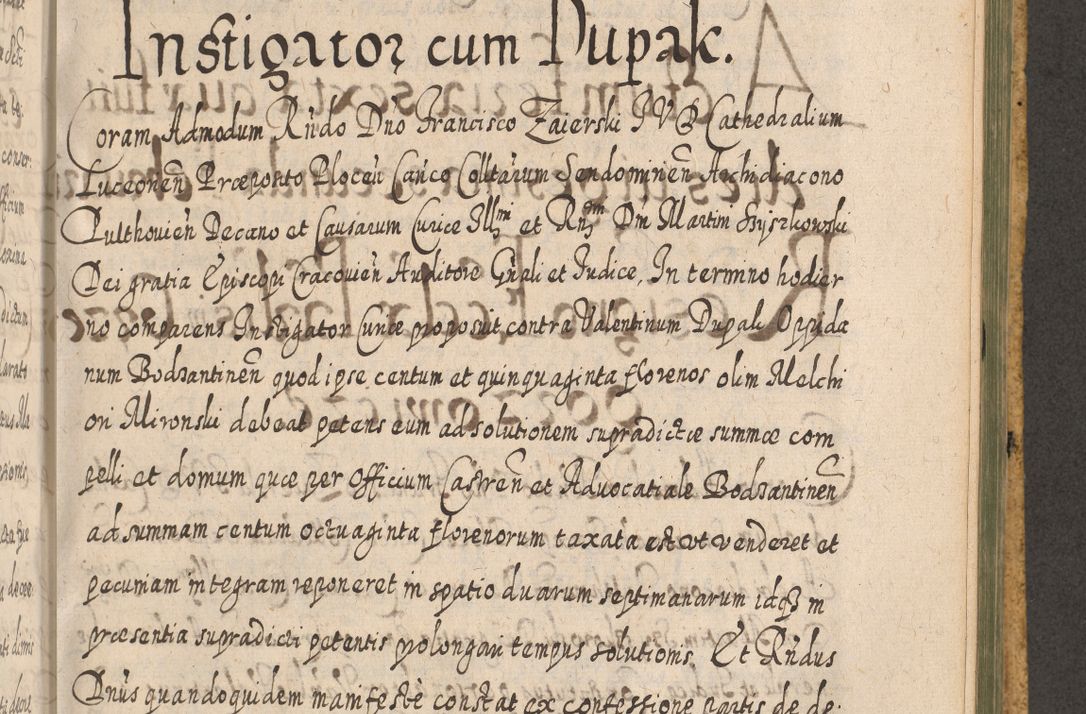 Instigator cum Dupak.
Coram Admodum Rńdo Dńo Francisco Zaierski I V D Cathedralium
Luceoneń Præposito Ploceń Cańco Colltarum Sendomirień Archidiacono
Pulthovień Decano et Causarum Curiæ Illmi et Rńdmi Dńi Martini Szyszkowski
Dei gratia Episcopi Cracovień Auditore Gńali et Iudice, In termino hodier
no comparens Instigator Curiæ proposuit contra Valentinum Dupak Oppida
num Bodzantineń quod ipse centum et quinquaginta florenos olim Melchi
ori Mironski debeat petens eum ad solutionem supradictæ summæ com
pelli et domum quæ per Officium Castreń et Advocatiale Bodzantineń
ad summam centum octuaginta florenorum taxata est ut venderet et
pecuniam integram reponeret in spatio duarum septimanarum idq3 in
præsentia supradicti petentis prolongari tempus solutionis. Et Rńdus
Dńus quandoquidem manifeste constat ex confessione partis de de-